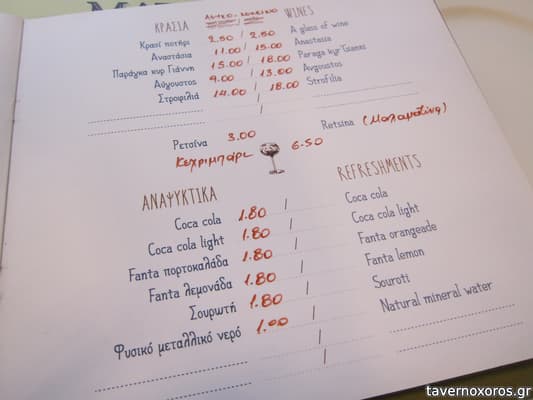 ΚΡΑΣΙΑ ΛΕΥΚΟ - ΚΟΚΚΙΝΟ WINES
Κρασί ποτήρι 2.50 / 2.50 A glass of wine
Αναστάσια 11.00 / 15.00 Anastasia
Παράγκα κυρ Γιάννη 15.00 / 18.00 Paraga kyr Gianni
Αύγουστος 9.00 / 13.00 Avgoustos
Στροφιλιά 14.00 / 18.00 Strofilia
/
Ρετσίνα 3.00 Retsina (Μαλαματίνα)
Κεχριμπάρι 6.50
ΑΝΑΨΥΚΤΙΚΑ REFRESHMENTS
Coca cola 1.80 / Coca cola
Coca cola light 1.80 / Coca cola light
Fanta πορτοκαλάδα 1.80 / Fanta orangeade
Fanta λεμονάδα 1.80 / Fanta lemon
Σουρωτή 1.80 / Souroti
Φυσικό μεταλλικό νερό 1.00 / Natural mineral water
/
/
tavernoxoros.gr